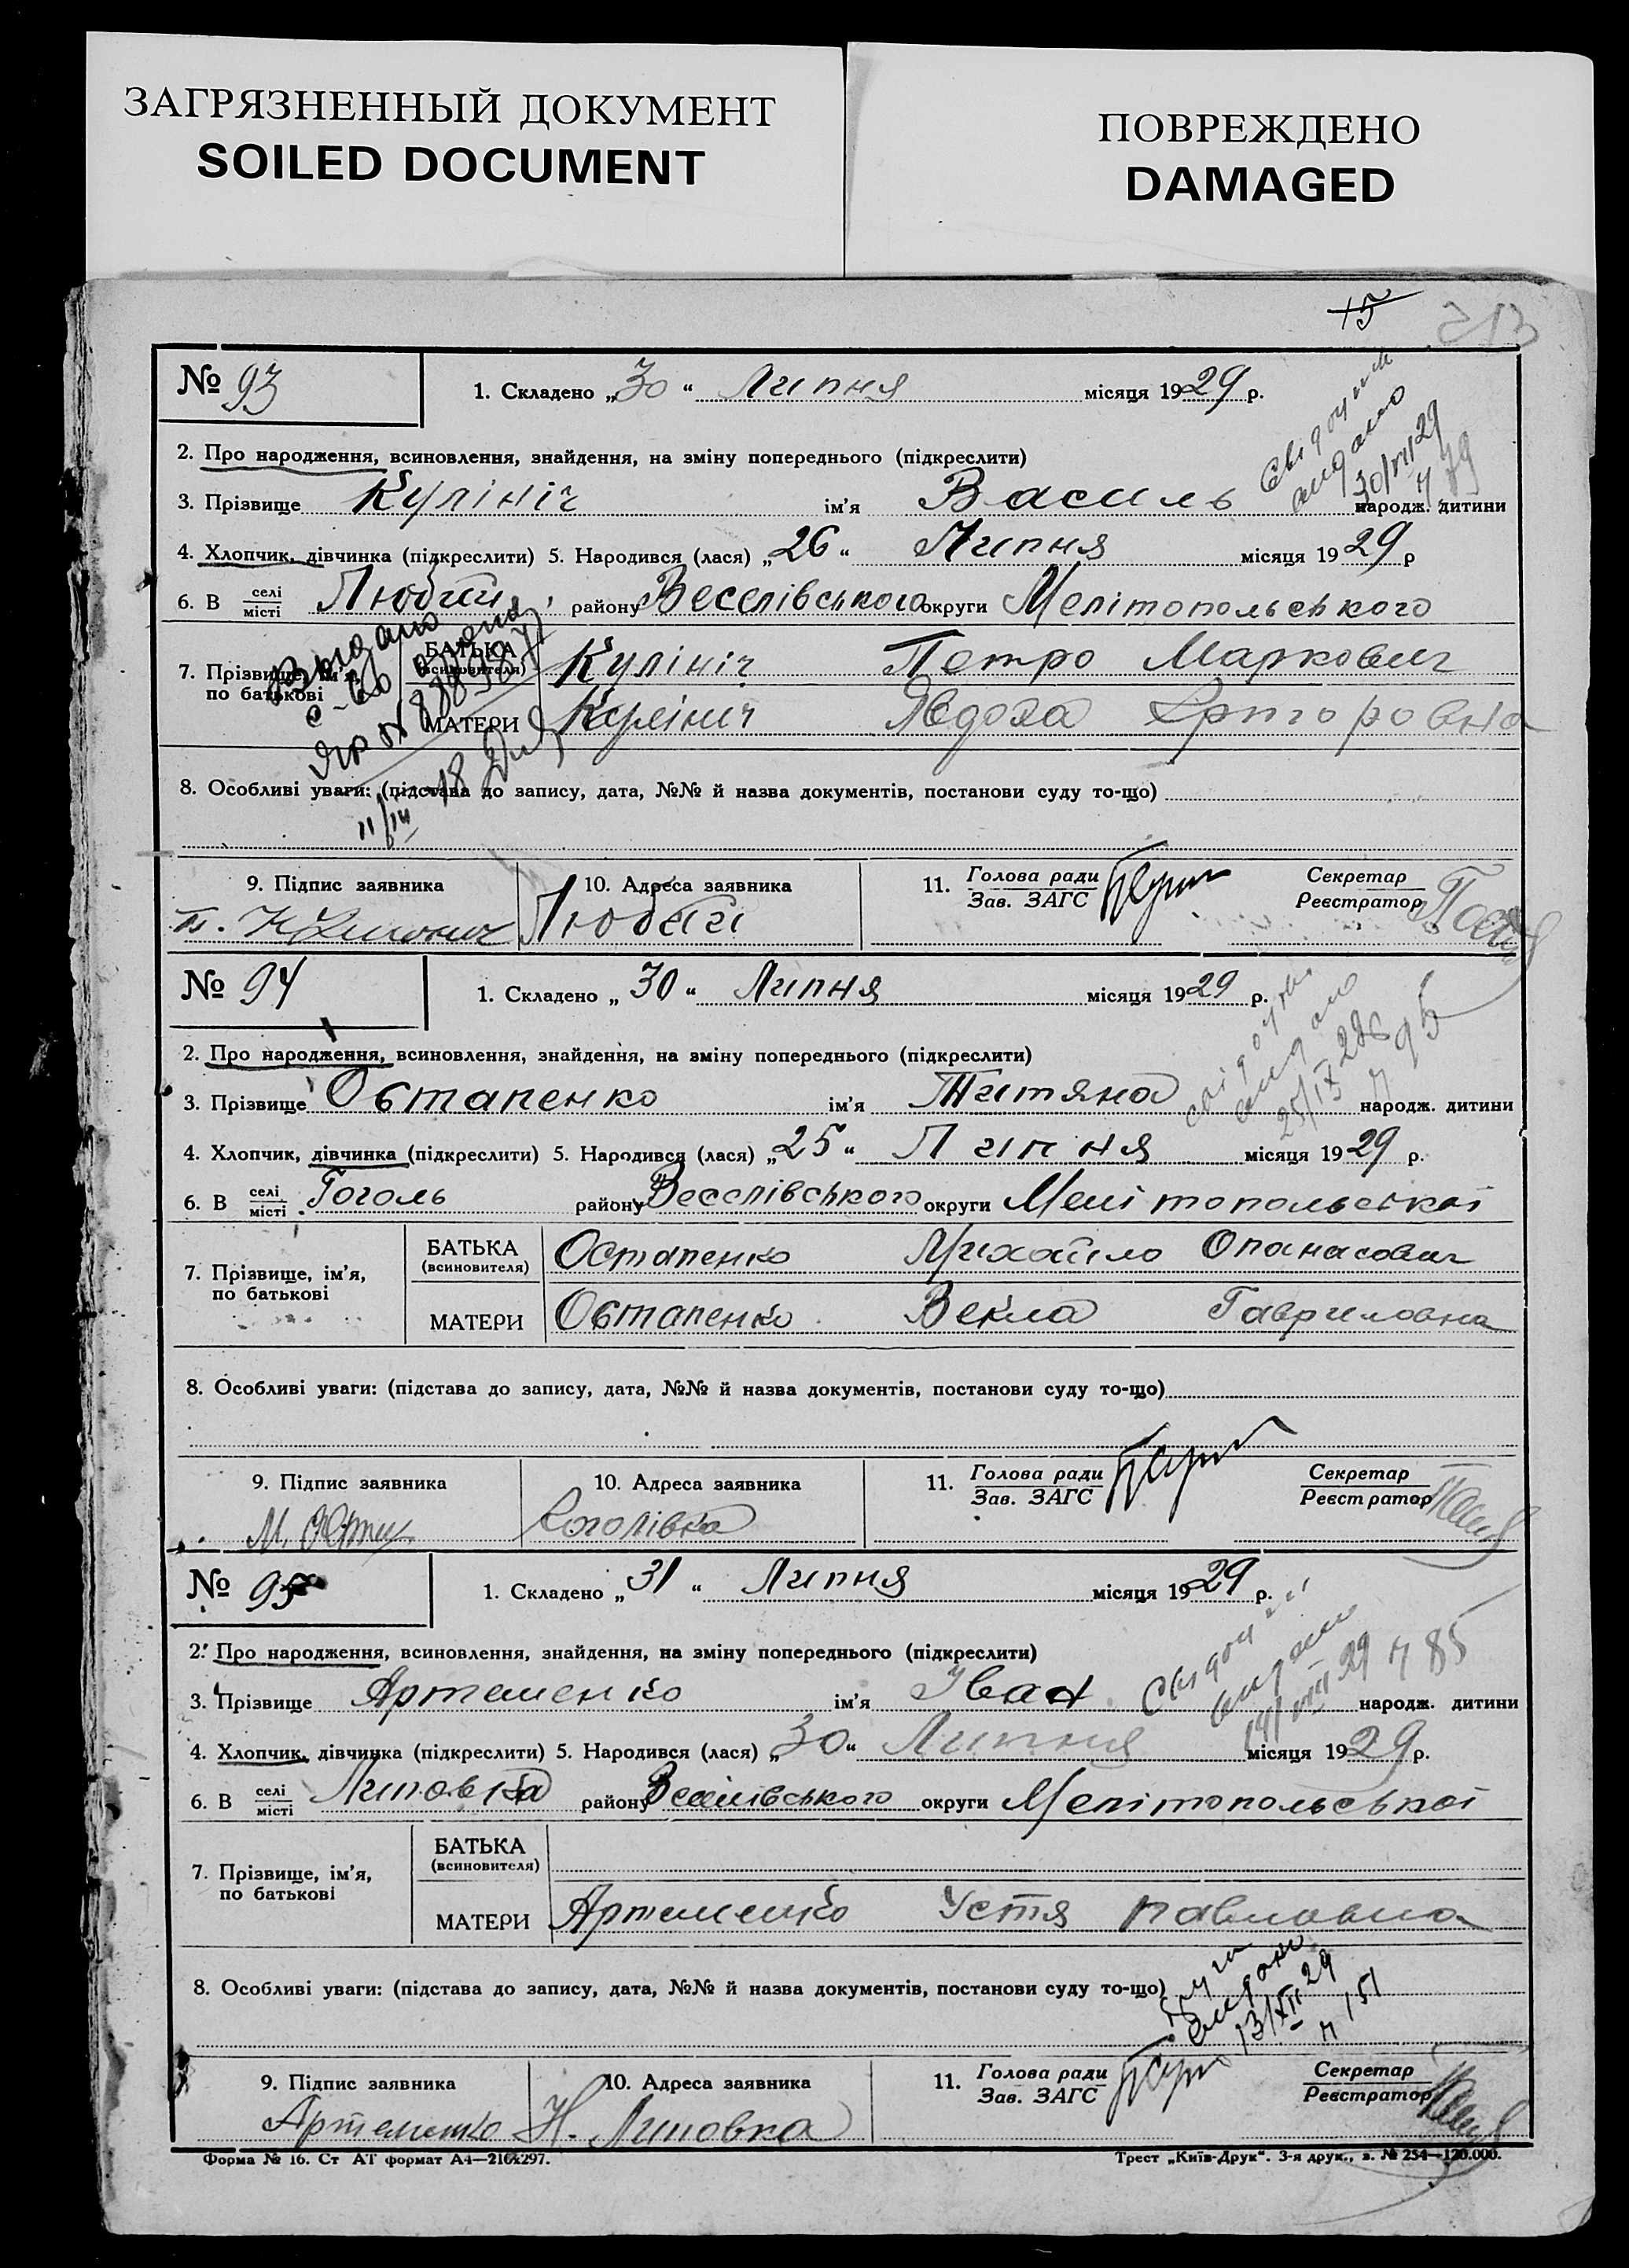 ЗАГРЯЗНЕННЫЙ ДОКУМЕНТ
SOILED DOCUMENT
ПОВРЕЖДЕНО
DAMAGED
15
213
№ 93
1. Складено „30“ Липня місяця 1929 р.
2. Про народження, всиновлення, знайдення, на зміну попереднього (підкреслити)
3. Прізвище Кулініч ім'я Василь народж. дитини
видано
30/VII 29
ч 79
4. Хлопчик, дівчинка (підкреслити) 5. Народився (лася) „26“ Липня місяця 1929 р
6. В селі/місті району Веселівського округи Мелітопольського
7. Прізвище, ім'я, по батькові
БАТЬКА (всиновителя) Кулініч Петро Маркович
МАТЕРИ Кулініч
8. Особливі уваги: (підстава до запису, дата, №№ й назва документів, постанови суду то-що)
9. Підпис заявника
10. Адреса заявника
11. Голова ради
Зав. ЗАГС
Секретар
Реєстратор
№ 94
1. Складено „30“ Липня місяця 1929 р.
2. Про народження, всиновлення, знайдення, на зміну попереднього (підкреслити)
3. Прізвище Остапенко ім'я Титяна народж. дитини
4. Хлопчик, дівчинка (підкреслити) 5. Народився (лася) „25“ Липня місяця 1929 р.
6. В селі/місті Гоголь району Веселівського округи Мелітопольської
7. Прізвище, ім'я, по батькові
БАТЬКА (всиновителя) Остапенко Михайло Опанасович
МАТЕРИ Остапенко Векла Гавриловна
8. Особливі уваги: (підстава до запису, дата, №№ й назва документів, постанови суду то-що)
9. Підпис заявника
10. Адреса заявника
Гоголівка
11. Голова ради
Зав. ЗАГС
Секретар
Реєстратор
№ 95
1. Складено „31“ Липня місяця 1929 р.
2. Про народження, всиновлення, знайдення, на зміну попереднього (підкреслити)
3. Прізвище Артеменко ім'я Іван народж. дитини
видано
14/VIII 29 ч 85
4. Хлопчик, дівчинка (підкреслити) 5. Народився (лася) „30“ Липня місяця 1929 р.
6. В селі/місті Липовка району Веселівського округи Мелітопольської
7. Прізвище, ім'я, по батькові
БАТЬКА (всиновителя)
МАТЕРИ Артеменко Устя Павловна
8. Особливі уваги: (підстава до запису, дата, №№ й назва документів, постанови суду то-що)
видано
13/XII 29
ч 151
9. Підпис заявника
Артеменко
10. Адреса заявника
Н. Липовка
11. Голова ради
Зав. ЗАГС
Секретар
Реєстратор
Форма № 16. Ст АТ формат А4—210х297.
Трест „Київ-Друк“. 3-я друк., з. № 254—120.000.